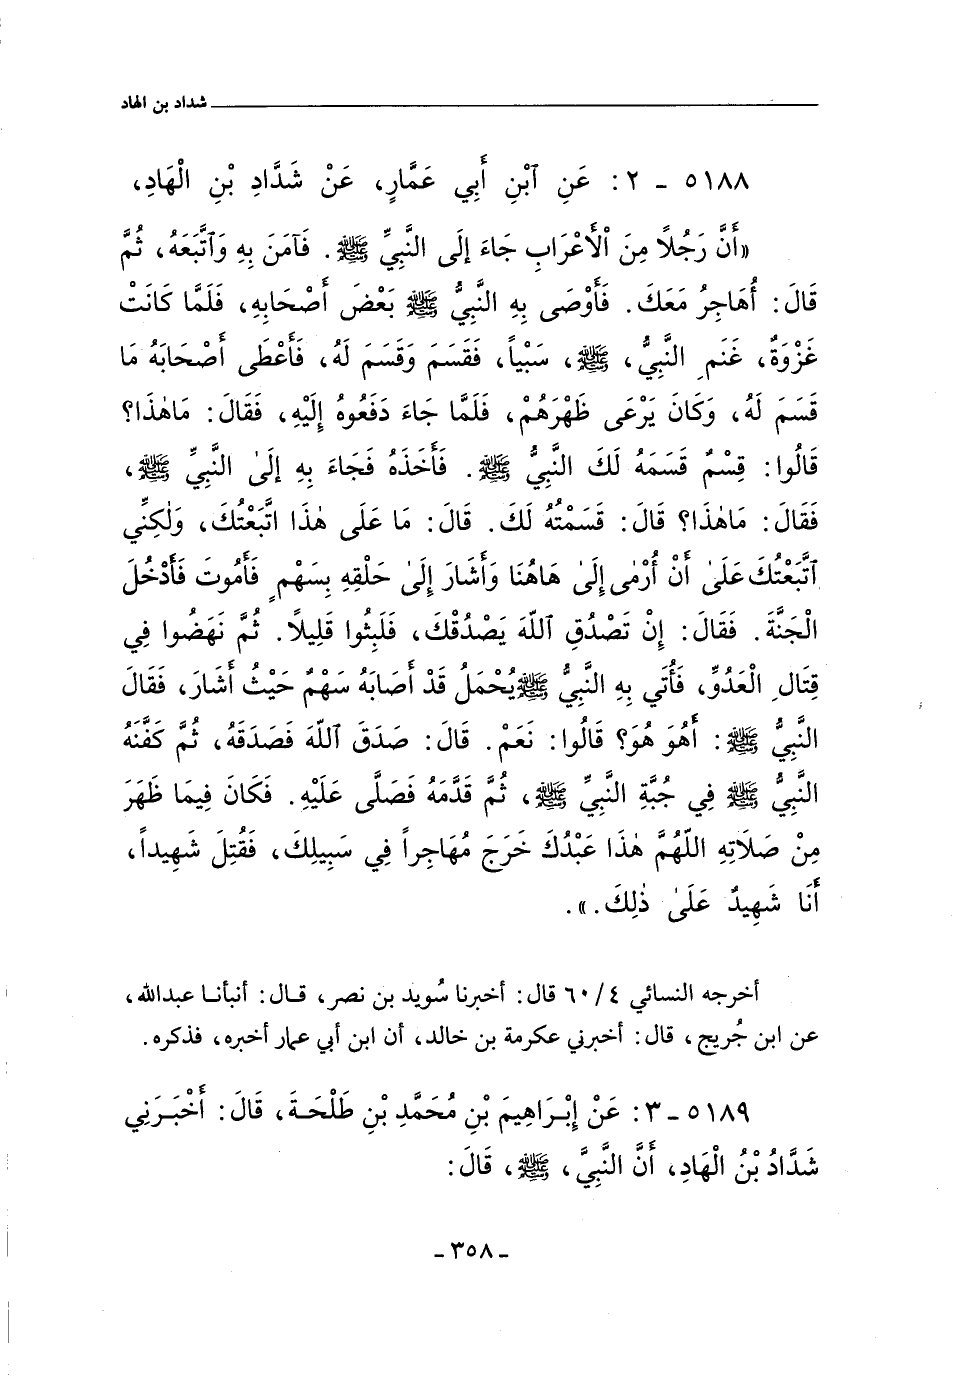 شداد بن الهاد
٥١٨٨ - ٢: عَنِ ٱبْنِ أَبِي عَمَّارٍ، عَنْ شَدَّادِ بْنِ الْهَادِ،
«أَنَّ رَجُلاً مِنَ ٱلْأَعْرَابِ جَاءَ إلَى النَّبِيِّ ﷺ. فَآمَنَ بِهِ وَٱتَّبَعَهُ، ثُمَّ
قَالَ: أُهَاجِرُ مَعَكَ. فَأَوْصَى بِهِ النَّبِيُّ ﷺ بَعْضَ أَصْحَابِهِ، فَلَمَّا كَانَتْ
غَزْوَةٌ، غَنَمِ النَّبِيُّ، ﷺ، سَبْياً، فَقَسَمَ وَقَسَمَ لَهُ، فَأَعْطَى أَصْحَابَهُ مَا
قَسَمَ لَهُ، وَكَانَ يَرْعَى ظَهْرَهُمْ، فَلَمَّا جَاءَ دَفَعُوهُ إِلَيْهِ، فَقَالَ: مَاهٰذَا؟
قَالُوا: قِسْمٌ قَسَمَهُ لَكَ النَّبِيُّ ﷺ. فَأَخَذَهُ فَجَاءَ بِهِ إلَىٰ النَّبِيِّ ﷺ،
فَقَالَ: مَاهٰذَا؟ قَالَ: قَسَمْتُهُ لَكَ. قَالَ: مَا عَلَى هٰذَا اتَّبَعْتُكَ، وَلٰكِنِّي
ٱتَّبَعْتُكَ عَلَىٰ أَنْ أُرْمٰى إِلَىٰ هَاهُنَا وَأَشَارَ إِلَىٰ حَلْقِهِ بِسَهْمٍ فَأَمُوتَ فَأَدْخُلَ
الْجَنَّةَ. فَقَالَ: إِنْ تَصْدُقِ ٱللّهَ يَصْدُقْكَ، فَلَبِثُوا قَلِيلاً. ثُمَّ نَهَضُوا فِي
قِتَالِ الْعَدُوِّ، فَأُتَي بِهِ النَّبِيُّ ﷺ يُحْمَلُ قَدْ أَصَابَهُ سَهْمٌ حَيْثُ أَشَارَ، فَقَالَ
النَّبِيُّ ﷺ: أَهُوَ هُوَ؟ قَالُوا: نَعَمْ. قَالَ: صَدَقَ ٱللّهَ فَصَدَقَهُ، ثُمَّ كَفَّنَهُ
النَّبِيُّ ﷺ فِي جُبَّةِ النَّبِيِّ ﷺ، ثُمَّ قَدَّمَهُ فَصَلَّى عَلَيْهِ. فَكَانَ فِيمَا ظَهَرَ
مِنْ صَلَاتِهِ اللّهُمَّ هٰذَا عَبْدُكَ خَرَجَ مُهَاجِراً فِي سَبِيلِكَ، فَقُتِلَ شَهِيداً،
أَنَا شَهِيدٌ عَلَىٰ ذٰلِكَ.».
أخرجه النسائي ٤/٦٠ قال: أخبرنا سُويد بن نصر، قال: أنبأنا عبدالله،
عن ابن جُريج، قال: أخبرني عكرمة بن خالد، أن ابن أبي عمار أخبره، فذكره.
٥١٨٩ - ٣: عَنْ إِبْرَاهِيمَ بْنِ مُحَمَّدِ بْنِ طَلْحَةَ، قَالَ: أَخْبَرَنِي
شَدَّادُ بْنُ الْهَادِ، أَنَّ النَّبِيَّ، ﷺ، قَالَ:
- ٣٥٨ -